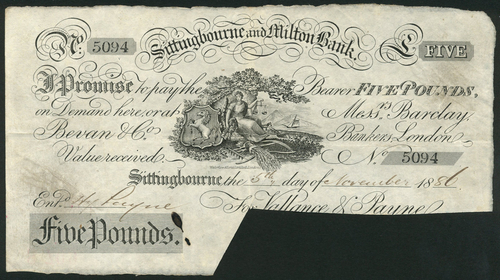 No. 5094 Sittingbourne and Milton Bank. £ FIVE
I Promise to pay the Bearer FIVE POUNDS,
on Demand here, or at Messrs. Barclay,
Bevan & Co. Bankers, London.
Value received. No. 5094
Sittingbourne the 5th day of November 1886
Entd. Payne For Vallance & Payne
Five Pounds.